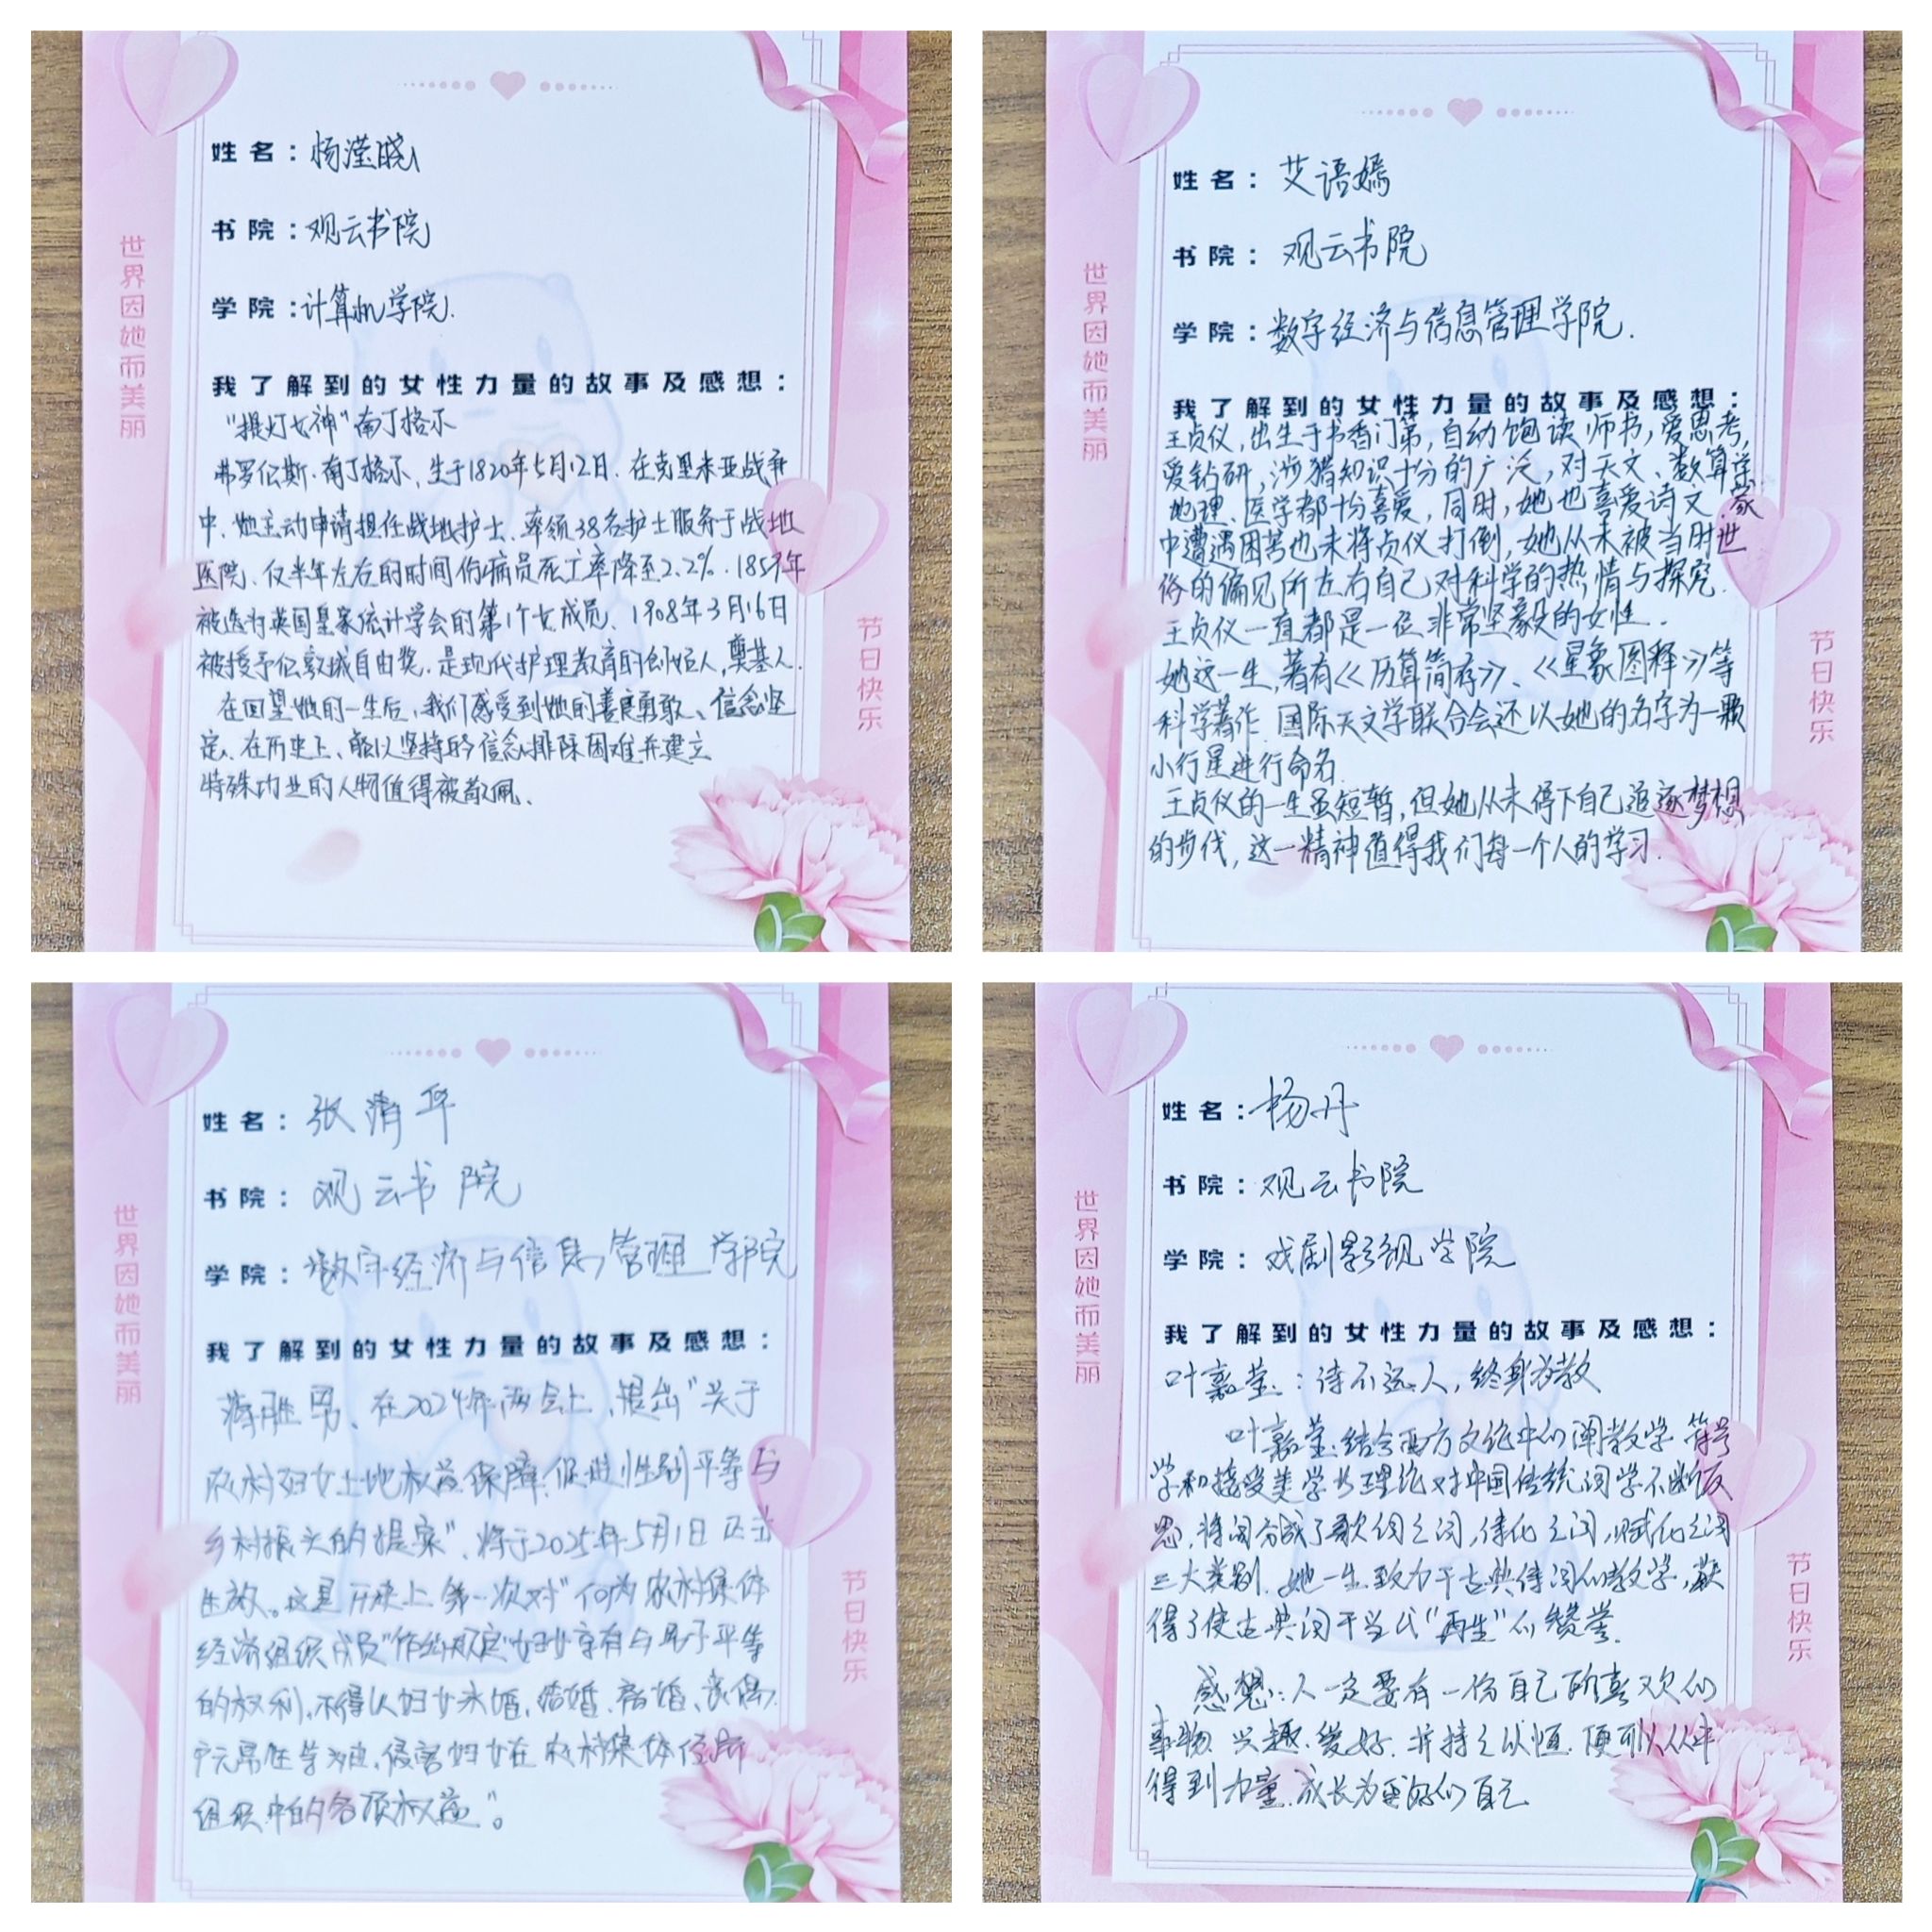 姓名：杨滢晓
书院：观云书院
学院：计算机学院.
我了解到的女性力量的故事及感想：
“提灯女神”南丁格尔
弗罗伦斯·南丁格尔,生于1820年5月12日.在克里米亚战争
中.她主动申请担任战地护士、率领38名护士服务于战地
医院.仅半年左右的时间伤病员死亡率降至2.2%.1859年
被选为英国皇家统计学会的第1个女成员、1908年3月16日
被授予伦敦城自由奖.是现代护理教育的创始人,奠基人.
在回望她的一生后,我们感受到她的善良勇敢、信念坚
定.在历史上、能以坚持的信念排除困难并建立
特殊功业的人物值得被敬佩、
世界因她而美丽
节日快乐
姓名：艾语嫣
书院：观云书院
学院：数字经济与信息管理学院.
我了解到的女性力量的故事及感想：
王贞仪,出生于书香门第,自动饱读师书,爱思考,
爱钻研,涉猎知识十分的广泛,对天文、数算学.
地理、医学都十份喜爱,同时,她也喜爱诗文.家
中遭遇困苦也未将贞仪打倒,她从未被当时世
俗的偏见所左右自己对科学的热情与探究.
王贞仪一直都是一位非常坚毅的女性.
她这一生,著有《历算简存》、《星象图释》等
科学著作.国际天文学联合会还以她的名字为一颗
小行星进行命名.
王贞仪的一生虽短暂,但她从未停下自己追逐梦想
的步伐,这一精神值得我们每一个人的学习.
世界因她而美丽
节日快乐
姓名：张清华
书院：观云书院
学院：数字经济与信息管理学院
我了解到的女性力量的故事及感想：
蒋胜男、在2024年两会上,提出“关于
农村妇女土地权益保障.促进性别平等与
乡村振兴的提案”,将于2025年5月1日正式
生效。这是历史上第一次对“何为农村集体
经济组织成员”作出规定“妇女享有与男子平等
的权利,不得以妇女未婚,结婚.离婚、丧偶.
户无男性等为由,侵害妇女在农村集体经济
组织中的各项权益”。
世界因她而美丽
节日快乐
姓名：杨丹
书院：观云书院
学院：戏剧影视学院
我了解到的女性力量的故事及感想：
叶嘉莹：诗不远人,终身为教
叶嘉莹.结合西方文论中的阐教学 符号
学和接受美学的理论对中国传统词学不断反
思,将词分成了歌词之词,诗化之词,赋化之词
三大类别.她一生致力于古典诗词的教学,获
得了使古典词于当代“再生”的赞誉.
感想:人一定要有一份自己所喜欢的
事物.兴趣.爱好.并持之以恒.便可以从中
得到力量.成长为更好的自己
世界因她而美丽
节日快乐